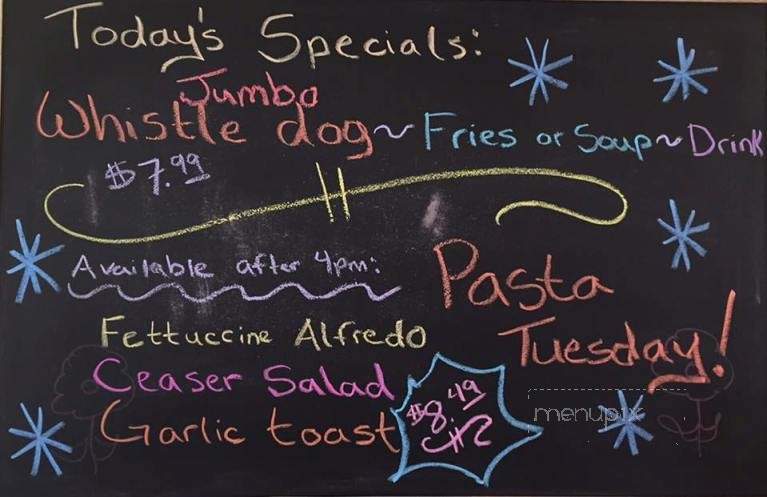 Today's Specials:
Jumbo
Whistle dog ~ Fries or Soup ~ Drink
$7.99
Available after 4pm:
Pasta
Tuesday!
Fettuccine Alfredo
Ceaser Salad
Garlic toast
$8.49
menupix